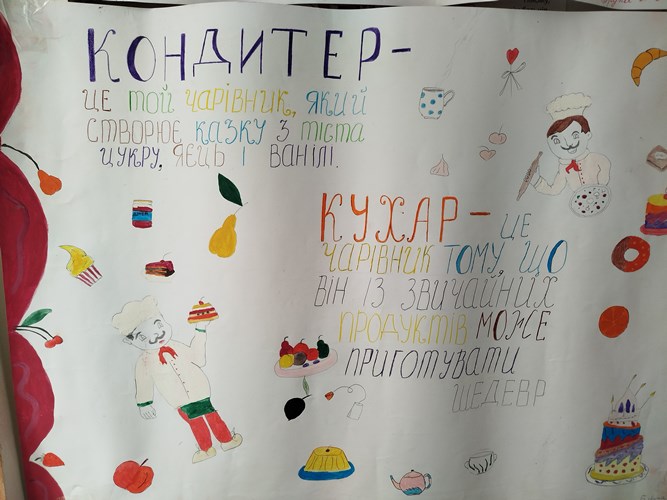 КОНДИТЕР-
ЦЕ ТОЙ ЧАРІВНИК, ЯКИЙ
СТВОРЮЄ КАЗКУ З ТІСТА
ЦУКРУ, ЯЄЦЬ І ВАНІЛІ.
КУХАР- ЦЕ
ЧАРІВНИК ТОМУ, ЩО
ВІН ІЗ ЗВИЧАЙНИХ
ПРОДУКТІВ МОЖЕ
ПРИГОТУВАТИ
ШЕДЕВР